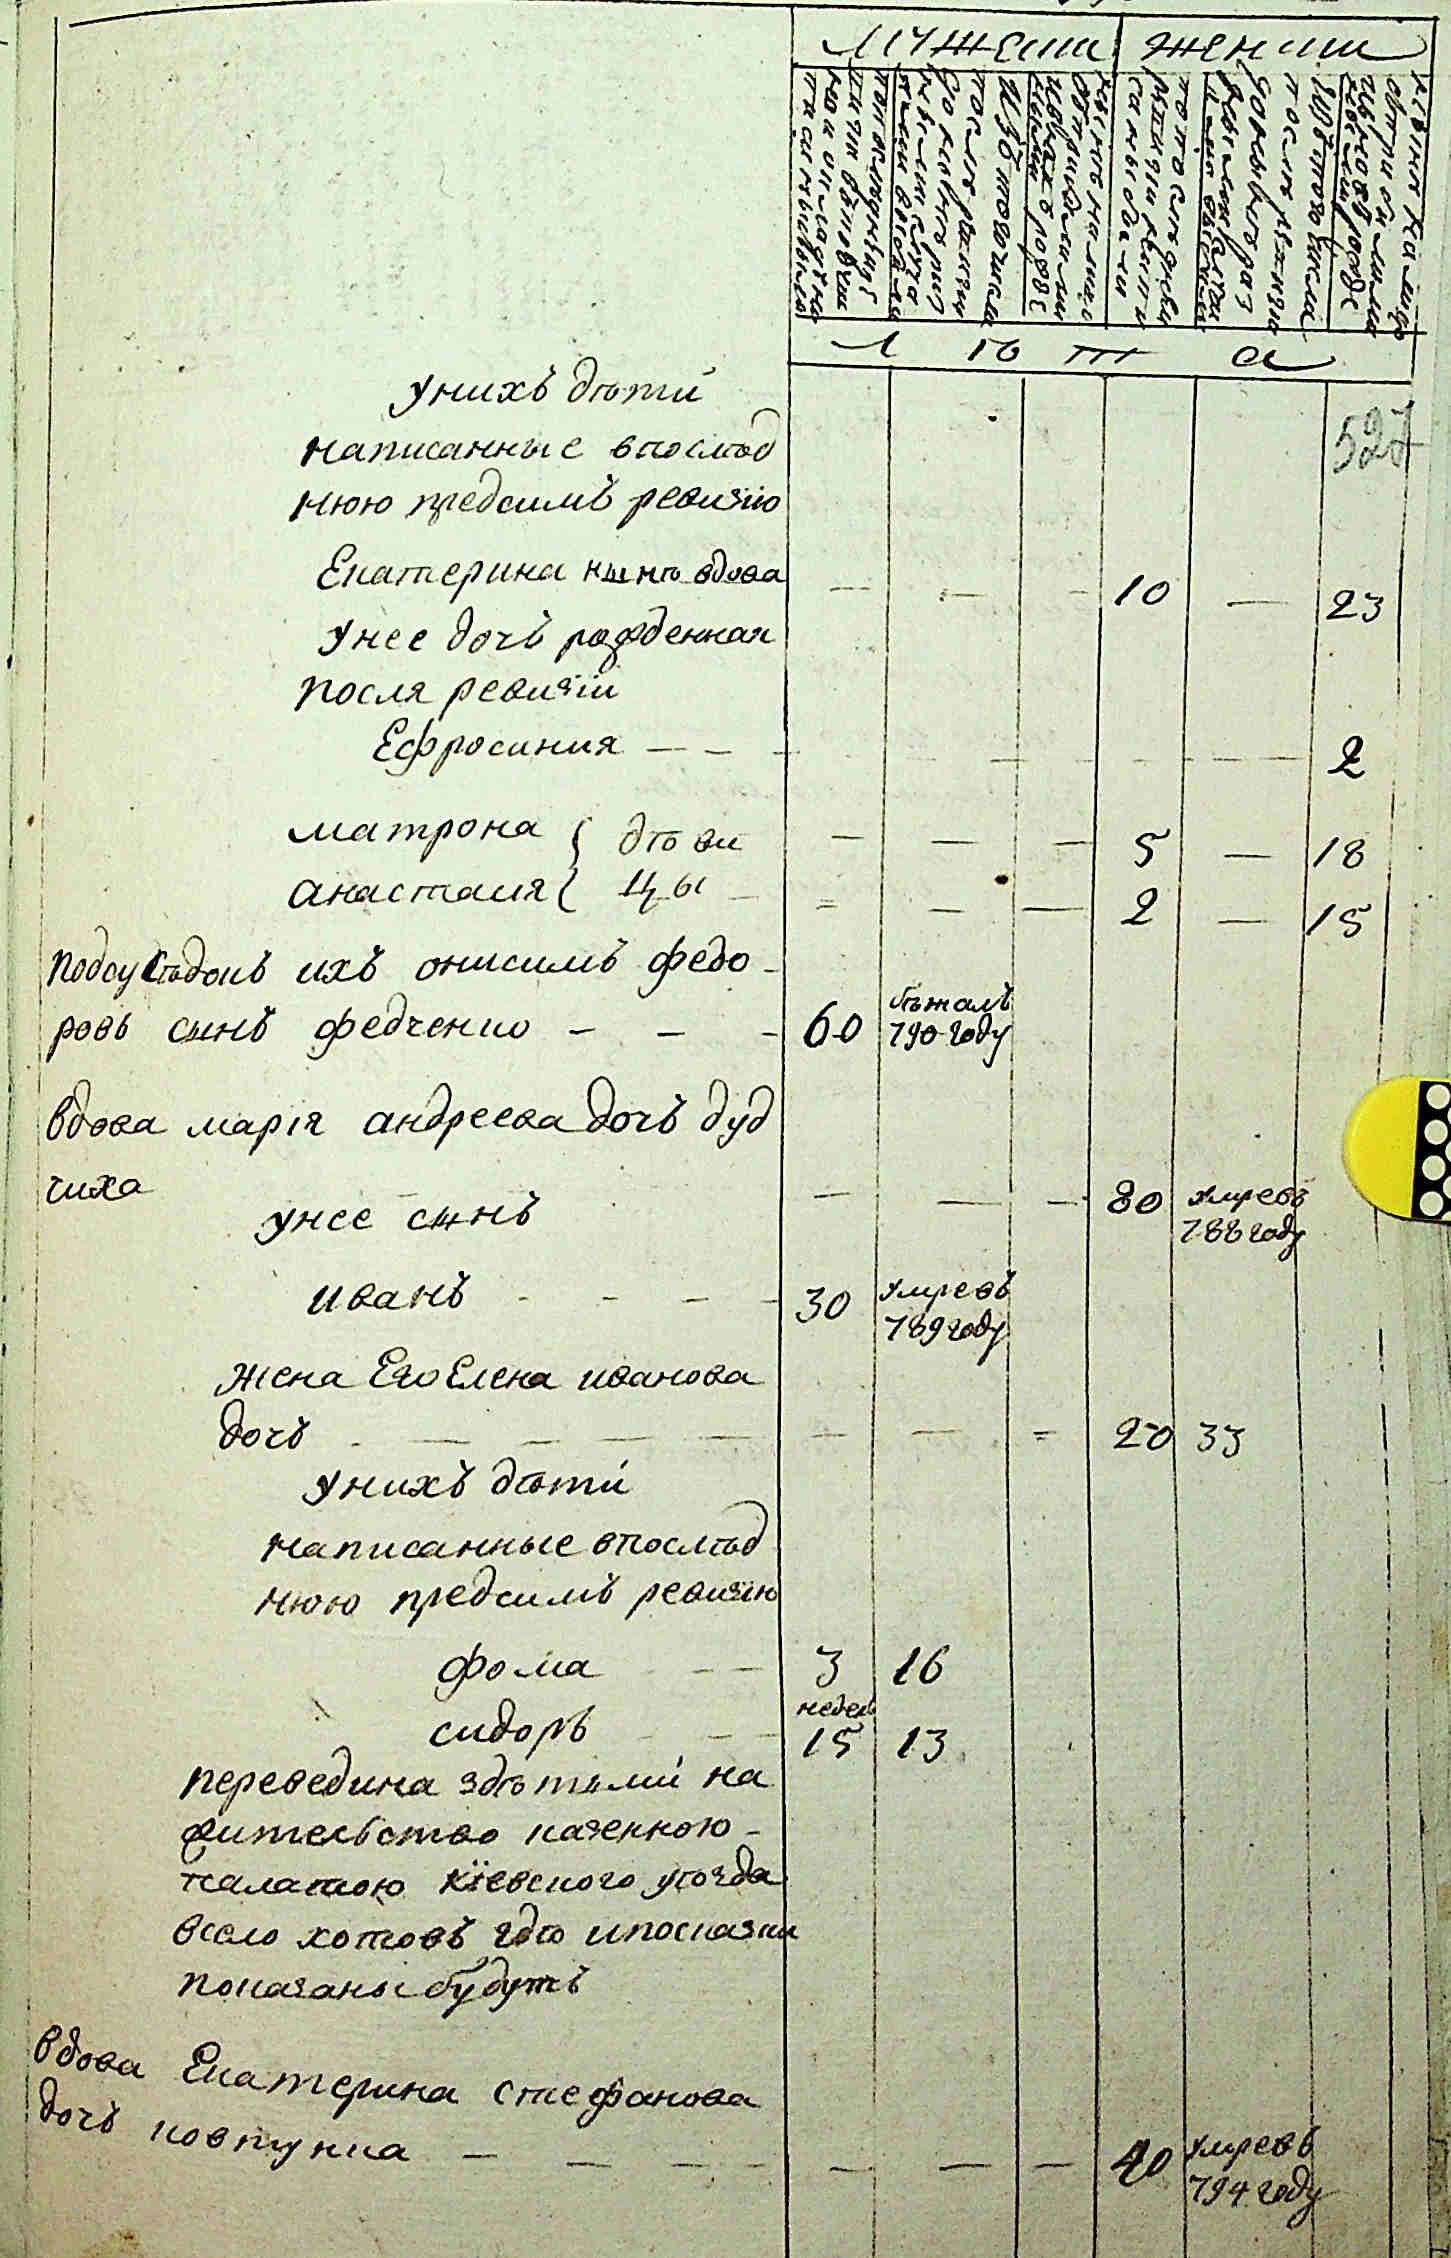 мужеии жении
лѣта
527
унихъ дѣти
написанные впослѣд
нюю предсимъ ревизію
Екатерина нынѣ вдова — — — 10 — 23
унее дочь рожденная
после ревизіи
Ефросиния — — — 2
матрона { дѣви — — — 5 — 18
анастасия { цы — = — — 2 — 15
подсусѣдокъ ихъ онисимъ федо
ровъ сынъ федченко — — — 60 бѣжалъ 790 году
вдова марія андреева дочь дуд
чиха — — — 80 умрѣвъ 788 году
унее сынъ
иванъ - - - - 30 умревъ 789 году
жена Его Елена иванова
дочь — — — — — — = 20 33
унихъ дѣти
написанные впослѣд
нюю предсимъ ревизію
фома — — 3 16
сидоръ — — недель 15 13
переведина здѣтьми на
жительство казенною
палатою кіевского уѣзда
всело хотовъ гдѣ ипосказки
показаны будутъ
вдова Екатерина стефанова
дочь ковтунка — — — — — — — 40 умревъ 794 году